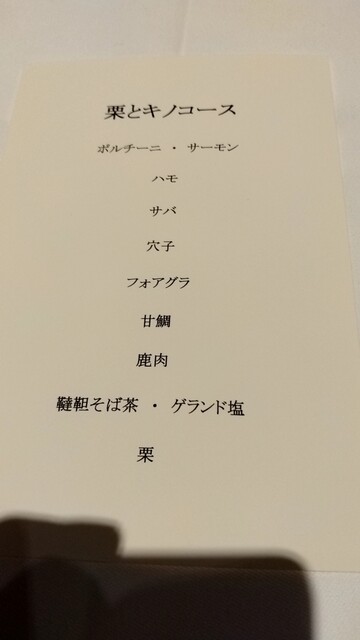 栗とキノコース
ポルチーニ ・ サーモン
ハモ
サバ
穴子
フォアグラ
甘鯛
鹿肉
韃靼そば茶 ・ ゲランド塩
栗